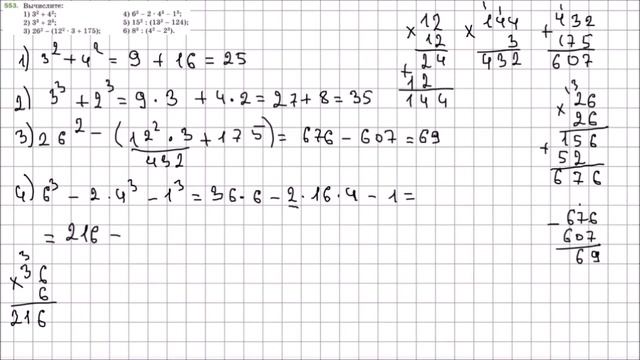 553. Вычислите:
1) 3² + 4²;
2) 3³ + 2³;
3) 26² − (12² · 3 + 175);
4) 6³ − 2 · 4³ − 1³;
5) 15² : (13² − 124);
6) 8³ : (4² − 2³).
1) 3² + 4² = 9 + 16 = 25
2) 3³ + 2³ = 9 · 3 + 4 · 2 = 27 + 8 = 35
3) 26² − (12² · 3 + 175) = 676 − 607 = 69
432
4) 6³ − 2 · 4³ − 1³ = 36 · 6 − 2 · 16 · 4 − 1 =
= 216 −
3
× 36
6
216
× 12
12
24
+ 12
144
1 1
× 144
3
432
1
+ 432
175
607
3
× 26
26
156
+ 52
676
− 676
607
69